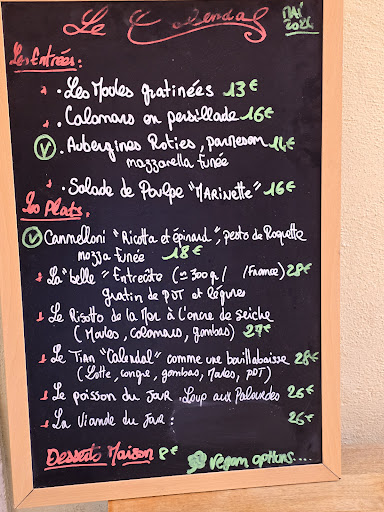 Le Calendal
MAI 2024
Les Entrées :
. Les Moules gratinées 13€
. Calamars en persillade 16€
V . Aubergines Roties, parmesan 14€
mozzarella fumée
. Salade de Poulpe "MARINETTE" 16€
Les Plats.
V Cannelloni "Ricotta et épinard", pesto de Roquette
mozza fumée 18€
La "belle" Entrecôte (≃ 300 gr/ /France) 28€
gratin de PDT et légumes
Le Risotto de la Mer à l'encre de seiche
(Moules, calamars, gambas) 27€
Le Tian "Calendal" comme une bouillabaisse 28€
(Lotte, congre, gambas, Moules, PDT)
Le poisson du Jour : Loup aux Palourdes 26€
La Viande du Jour : 26€
Desserts Maison 8€ Vegan options....